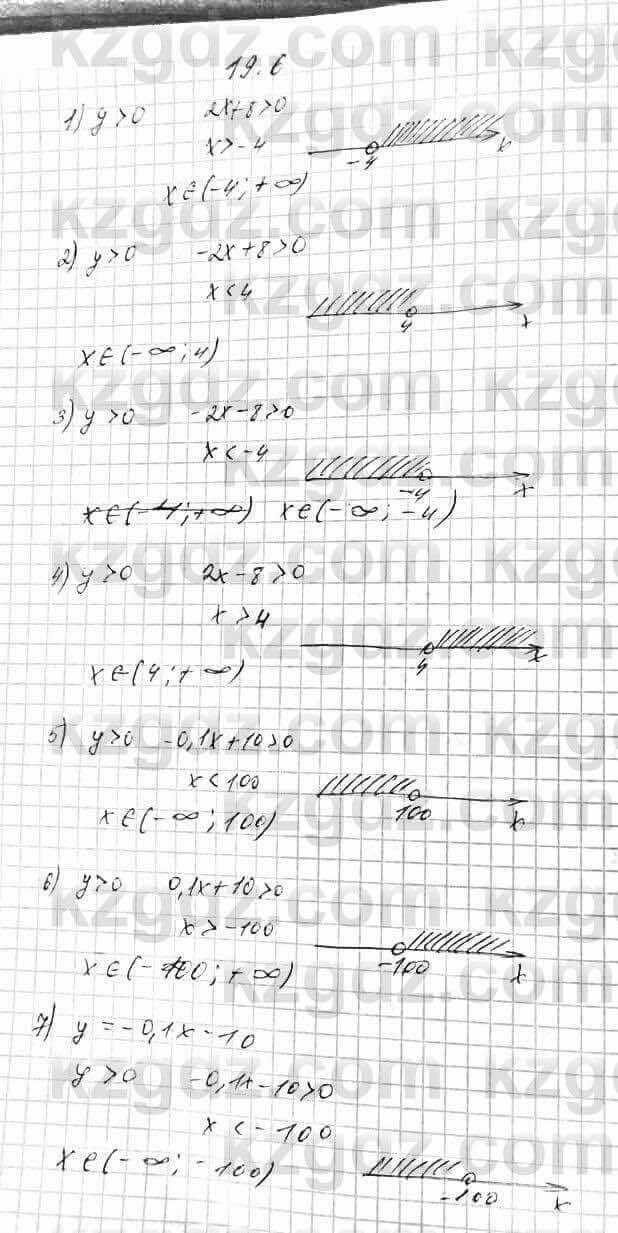 19.6
1) y>0 2x+8>0
x>-4
-4 x
x∈(-4;+∞)
2) y>0 -2x+8>0
x<4
4 x
x∈(-∞;4)
3) y>0 -2x-8>0
x<-4
-4 x
x∈(-4;+∞) x∈(-∞;-4)
4) y>0 2x-8>0
x>4
4 x
x∈(4;+∞)
5) y>0 -0,1x+10>0
x<100
100 x
x∈(-∞;100)
6) y>0 0,1x+10>0
x>-100
-100 x
x∈(-100;+∞)
7) y=-0,1x-10
y>0 -0,1x-10>0
x<-100
x∈(-∞;-100)
-100 x
kzgdz.com